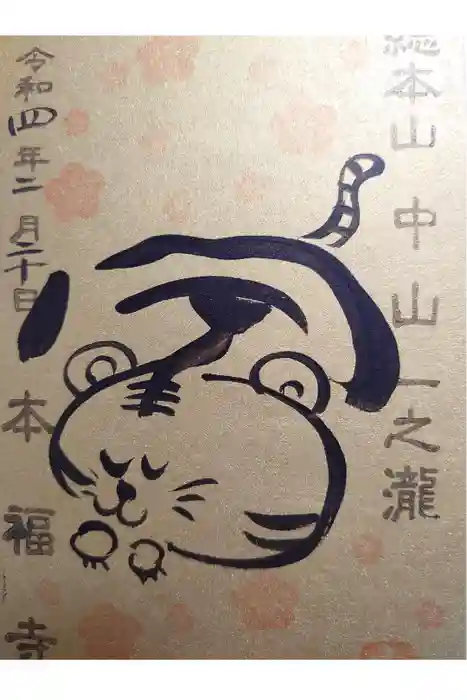 總本山 中山一之瀧
令和四年二月二十日
本福寺